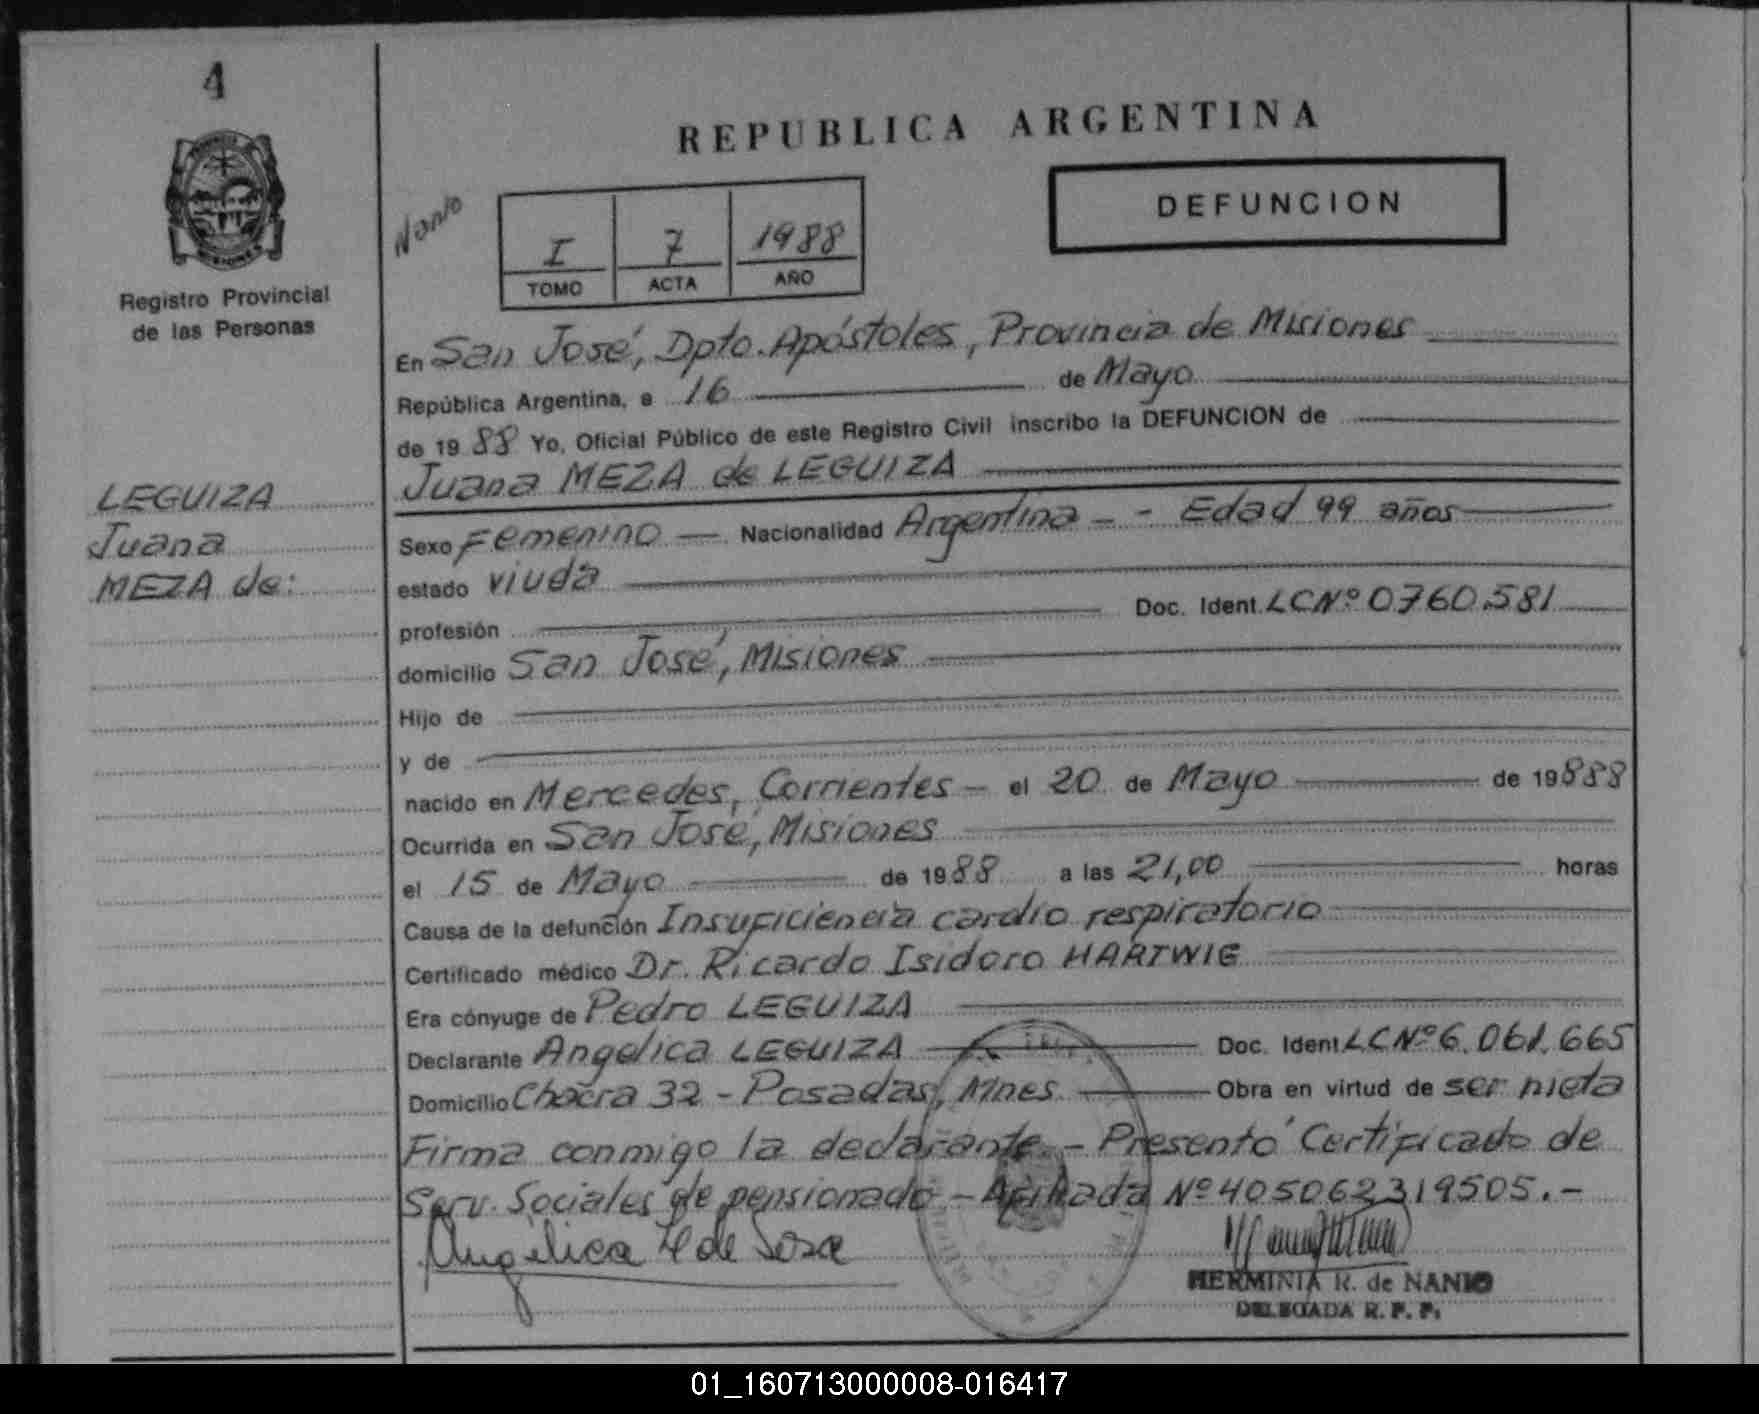 4
REPUBLICA ARGENTINA
Nanio
DEFUNCION
I 7 1988
TOMO ACTA AÑO
MISIONES
Registro Provincial
de las Personas
En San José, Dpto. Apóstoles, Provincia de Misiones
República Argentina, a 16 de Mayo
de 1988 Yo, Oficial Público de este Registro Civil inscribo la DEFUNCION de
Juana MEZA de LEGUIZA
LEGUIZA
Juana
MEZA de:
Sexo Femenino — Nacionalidad Argentina - - Edad 99 años
estado viuda
profesión Doc. Ident. LCNº 0760.581
domicilio San José, Misiones
Hijo de
y de
nacido en Mercedes, Corrientes - el 20 de Mayo de 19888
Ocurrida en San José, Misiones
el 15 de Mayo de 1988 a las 21,00 horas
Causa de la defunción Insuficiencia cardio respiratorio
Certificado médico Dr. Ricardo Isidoro HARTWIG
Era cónyuge de Pedro LEGUIZA
Declarante Angelica LEGUIZA Doc. Ident. LCNº 6.061.665
Domicilio Chacra 32 - Posadas, Mnes. Obra en virtud de ser nieta
Firma conmigo la declarante. - Presentó Certificado de
Serv. Sociales de pensionado - Afiliada Nº 405062319505. -
Angélica L de Sosa
HERMINIA R. de NANIO
DELEGADA R. P. P.
01_160713000008-016417